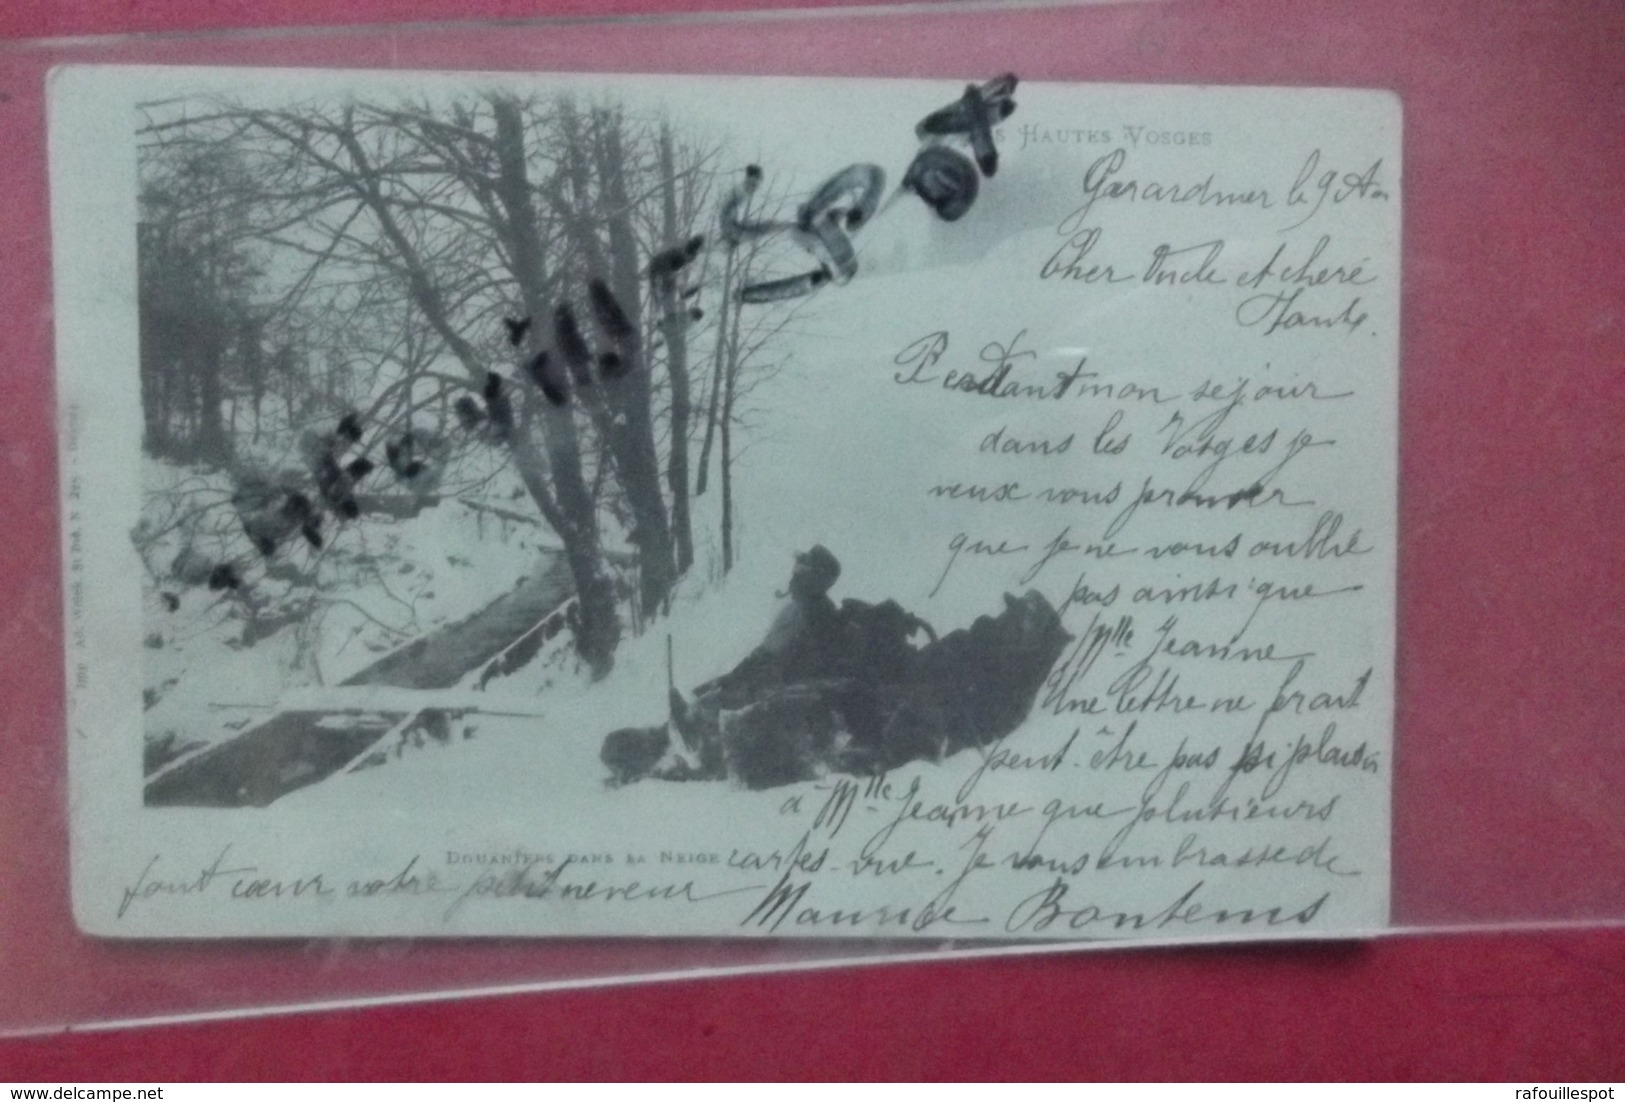 Hautes Vosges
Gerardmer le 9 Ao
Cher Oncle et cheré
Tante.
Pendant mon séjour
dans les Vosges je
veux vous prouver
que je ne vous oublie
pas ainsi que
Mlle Jeanne
Une lettre ne ferait
peut-être pas si plaisir
à Mlle Jeanne que plusieurs
cartes-vue. Je vous embrasse de
tout cœur votre petit neveu
Maurice Bontems
Douaniers dans la Neige
delcampe.net
rafouillespot